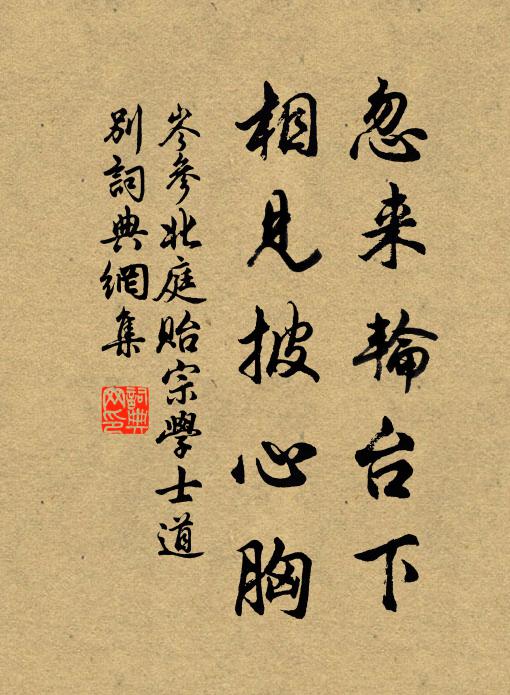 忽来輪台下
相見披心胸
岑參北庭貽宗學士道
別詞典網集
詞典
网印